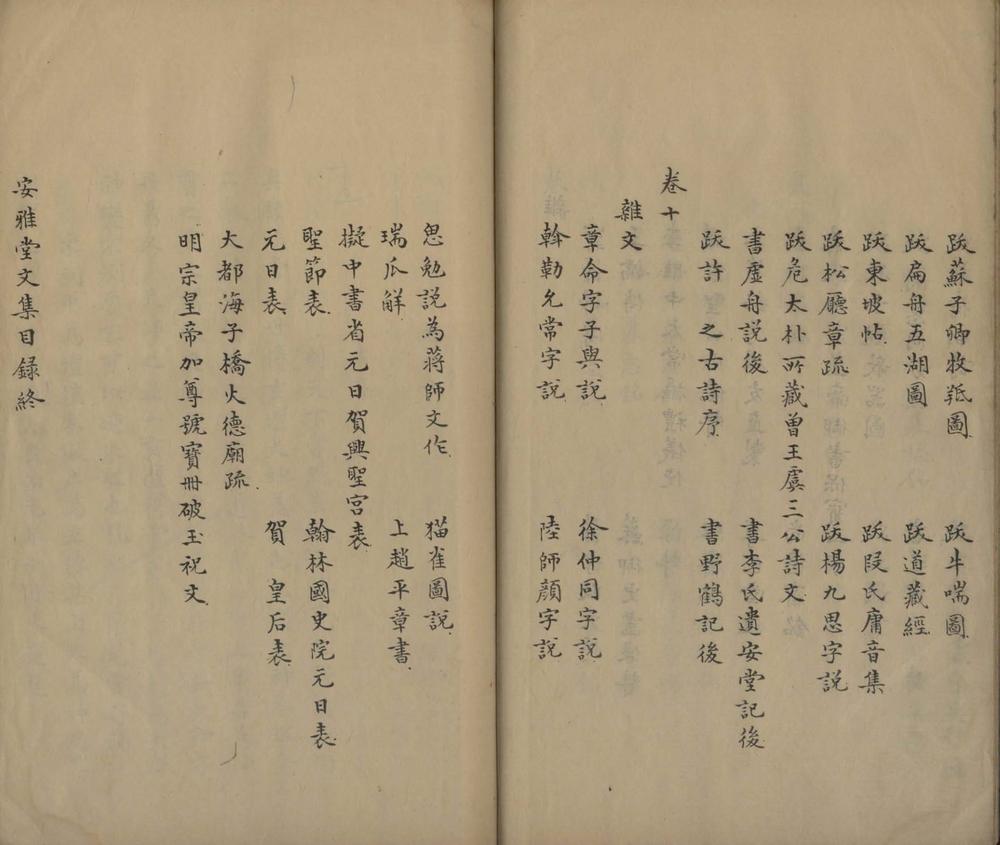 跋蘇子卿牧羝圖　跋牛喘圖
跋扁舟五湖圖　跋道藏經
跋東坡帖　跋段氏庸音集
跋松廳章疏　跋楊九思字説
跋危太朴所藏曾王虞三公詩文
書虛舟説後　書李氏遺安堂記後
跋許益之古詩序　書野鶴記後
卷十
雜文
章命字子與説　徐仲同字説
斡勒允常字説　陸師顔字説
思勉説為蔣師文作　猫雀圖説
瑞瓜解　上趙平章書
擬中書省元日賀興聖宮表
聖節表　翰林國史院元日表
元日表　賀　皇后表
大都海子橋火德廟疏
明宗皇帝加尊號寶冊破玉祝文
安雅堂文集目録終